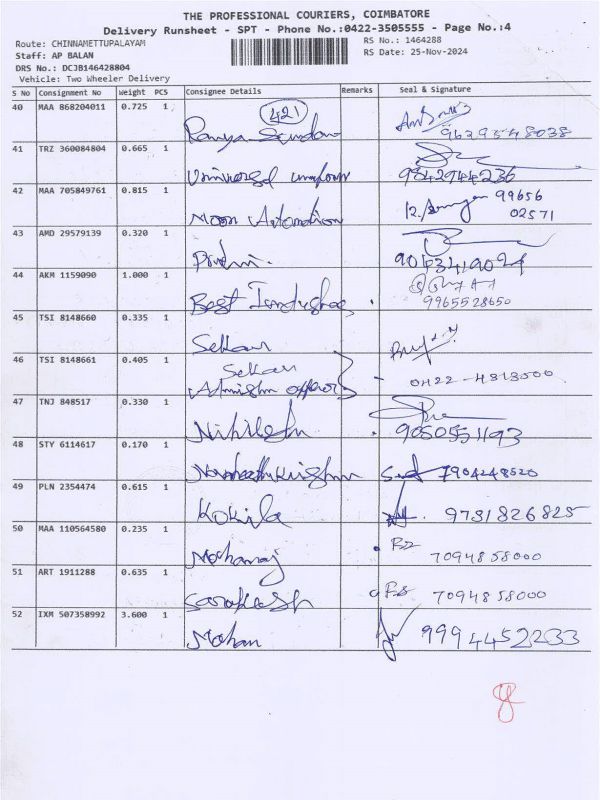 THE PROFESSIONAL COURIERS, COIMBATORE
Delivery Runsheet - SPT - Phone No.:0422-3505555 - Page No.:4
Route: CHINNAMETTUPALAYAM RS No.: 1464288
Staff: AP BALAN RS Date: 25-Nov-2024
DRS No.: DCJB146428804
Vehicle: Two Wheeler Delivery
S No Consignment No Weight PCS Consignee Details Remarks Seal & Signature
40 MAA 868204011 0.725 1 421
Ramya 9629548038
41 TRZ 360084804 0.665 1
Universal uniform 9842944236
42 MAA 705849761 0.815 1 99656
Moon Automation 02571
43 AMD 29579139 0.320 1
9013419024
44 AKM 1159090 1.000 1
Best Industries 9965528650
45 TSI 8148660 0.335 1
Sekar
46 TSI 8148661 0.405 1
Sekar
Admission officer 0422-4313500
47 TNJ 848517 0.330 1
Nihilesh 9050551193
48 STY 6114617 0.170 1
Navaneethakrishnan 7904248520
49 PLN 2354474 0.615 1
Kokila 9731826825
50 MAA 110564580 0.235 1
Mohanraj 7094858000
51 ART 1911288 0.635 1
7094858000
52 IXM 507358992 3.600 1
Mohan 9994452233